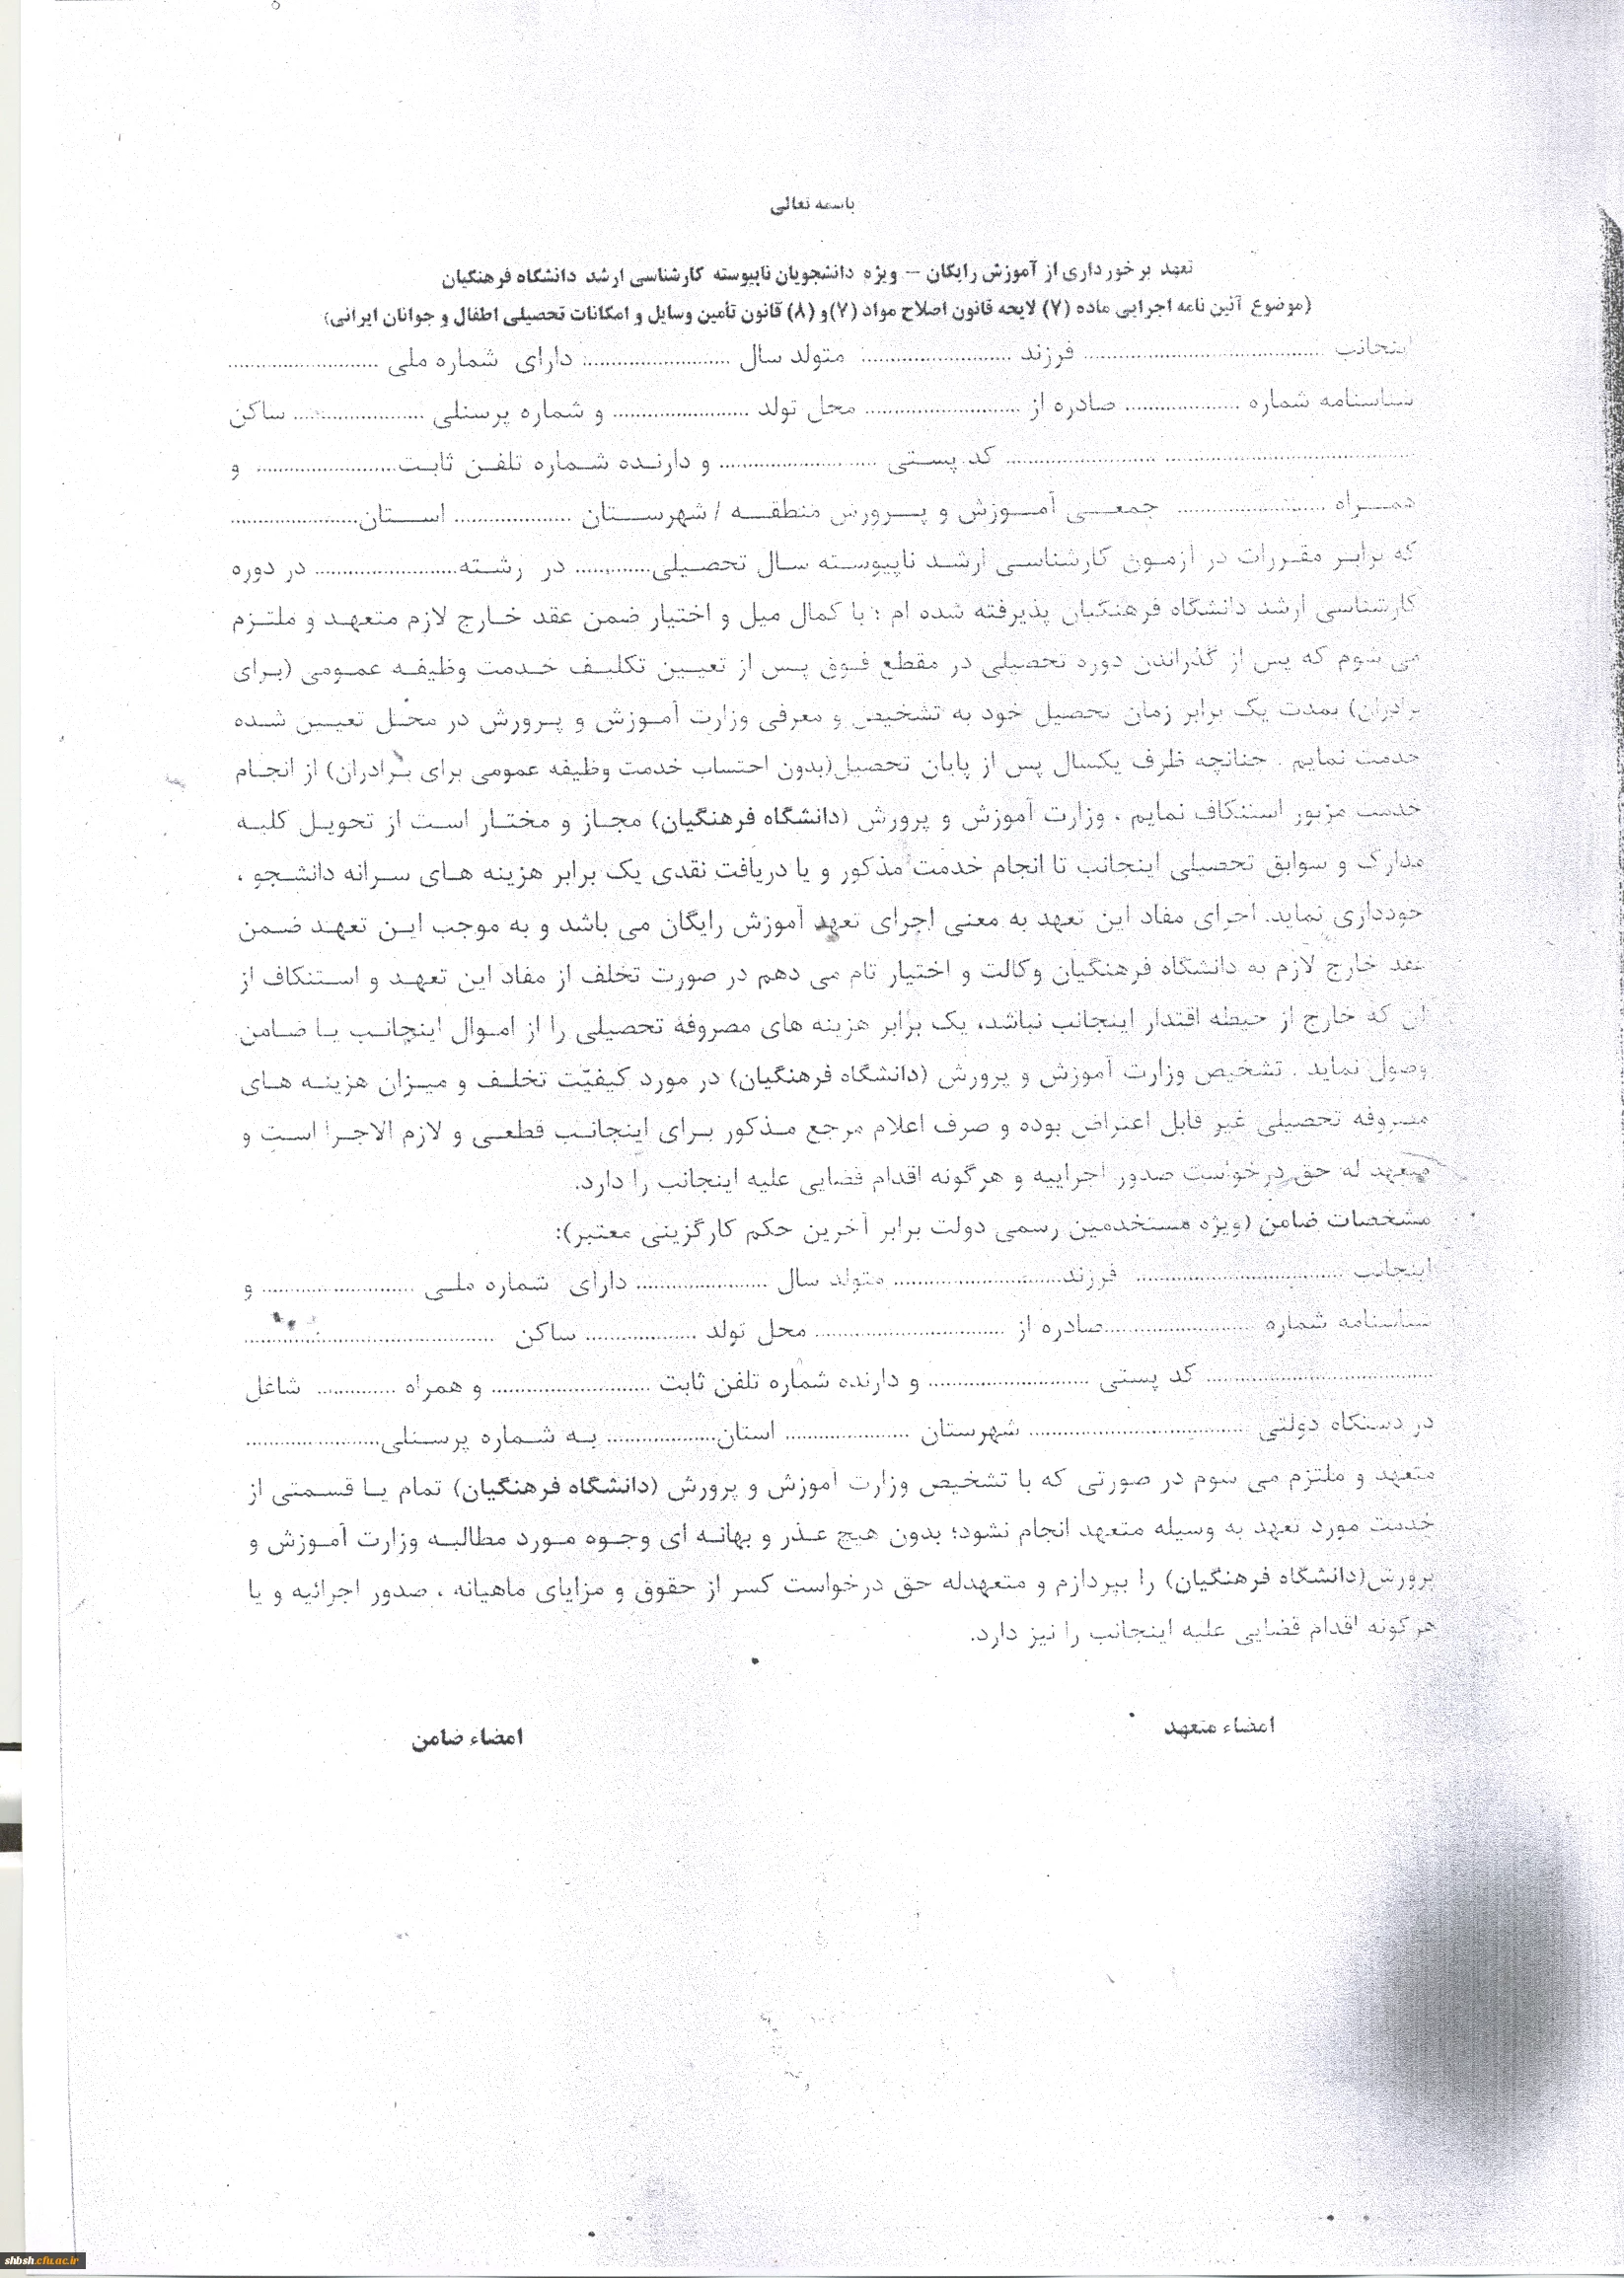 باسمه تعالی
تعهد برخورداری از آموزش رایگان – ویژه دانشجویان ناپیوسته کارشناسی ارشد دانشگاه فرهنگیان
(موضوع آئین نامه اجرایی ماده (۷) لایحه قانون اصلاح مواد (۷)و (۸) قانون تأمین وسایل و امکانات تحصیلی اطفال و جوانان ایرانی)
اینجانب ........................................ فرزند ......................... متولد سال ......................... دارای شماره ملی .........................
شناسنامه شماره ................... صادره از .......................... محل تولد ....................... و شماره پرسنلی ...................... ساکن
.......................................... ......................... کد پستی .......................... و دارنده شماره تلفن ثابت........................ و
همراه ......................... جمعی آموزش و پرورش منطقه / شهرستان .................... استان.....................
که برابر مقررات در آزمون کارشناسی ارشد ناپیوسته سال تحصیلی............. در رشته........................ در دوره
کارشناسی ارشد دانشگاه فرهنگیان پذیرفته شده ام ؛ با کمال میل و اختیار ضمن عقد خارج لازم متعهد و ملتزم
می شوم که پس از گذراندن دوره تحصیلی در مقطع فوق پس از تعیین تکلیف خدمت وظیفه عمومی (برای
برادران) بمدت یک برابر زمان تحصیل خود به تشخیص و معرفی وزارت آموزش و پرورش در محل تعیین شده
خدمت نمایم . چنانچه ظرف یکسال پس از پایان تحصیل(بدون احتساب خدمت وظیفه عمومی برای برادران) از انجام
خدمت مزبور استنکاف نمایم ، وزارت آموزش و پرورش (دانشگاه فرهنگیان) مجاز و مختار است از تحویل کلیه
مدارک و سوابق تحصیلی اینجانب تا انجام خدمت مذکور و یا دریافت نقدی یک برابر هزینه های سرانه دانشجو ،
خودداری نماید. اجرای مفاد این تعهد به معنی اجرای تعهد آموزش رایگان می باشد و به موجب این تعهد ضمن
عقد خارج لازم به دانشگاه فرهنگیان وکالت و اختیار تام می دهم در صورت تخلف از مفاد این تعهد و استنکاف از
آن که خارج از حیطه اقتدار اینجانب نباشد، یک برابر هزینه های مصروفۀ تحصیلی را از اموال اینجانب یا ضامن
وصول نماید . تشخیص وزارت آموزش و پرورش (دانشگاه فرهنگیان) در مورد کیفیّت تخلف و میزان هزینه های
مصروفه تحصیلی غیر قابل اعتراض بوده و صرف اعلام مرجع مذکور برای اینجانب قطعی و لازم الاجرا است و
متعهد له حق درخواست صدور اجراییه و هرگونه اقدام قضایی علیه اینجانب را دارد.
مشخصات ضامن (ویژه مستخدمین رسمی دولت برابر آخرین حکم کارگزینی معتبر):
اینجانب ................................... فرزند............................ متولد سال ...................... دارای شماره ملی ......................... و
شناسنامه شماره .........................صادره از ................................ محل تولد ................... ساکن ..........................................
...................................... کد پستی ........................... و دارنده شماره تلفن ثابت ........................... و همراه ............. شاغل
در دستگاه دولتی .................................... شهرستان ..................... استان.................. به شماره پرسنلی......................
متعهد و ملتزم می شوم در صورتی که با تشخیص وزارت آموزش و پرورش (دانشگاه فرهنگیان) تمام یا قسمتی از
خدمت مورد تعهد به وسیله متعهد انجام نشود؛ بدون هیچ عذر و بهانه ای وجوه مورد مطالبه وزارت آموزش و
پرورش(دانشگاه فرهنگیان) را بپردازم و متعهدله حق درخواست کسر از حقوق و مزایای ماهیانه ، صدور اجرائیه و یا
هرگونه اقدام قضایی علیه اینجانب را نیز دارد.
امضاء متعهد
امضاء ضامن
shbsh.cfu.ac.ir